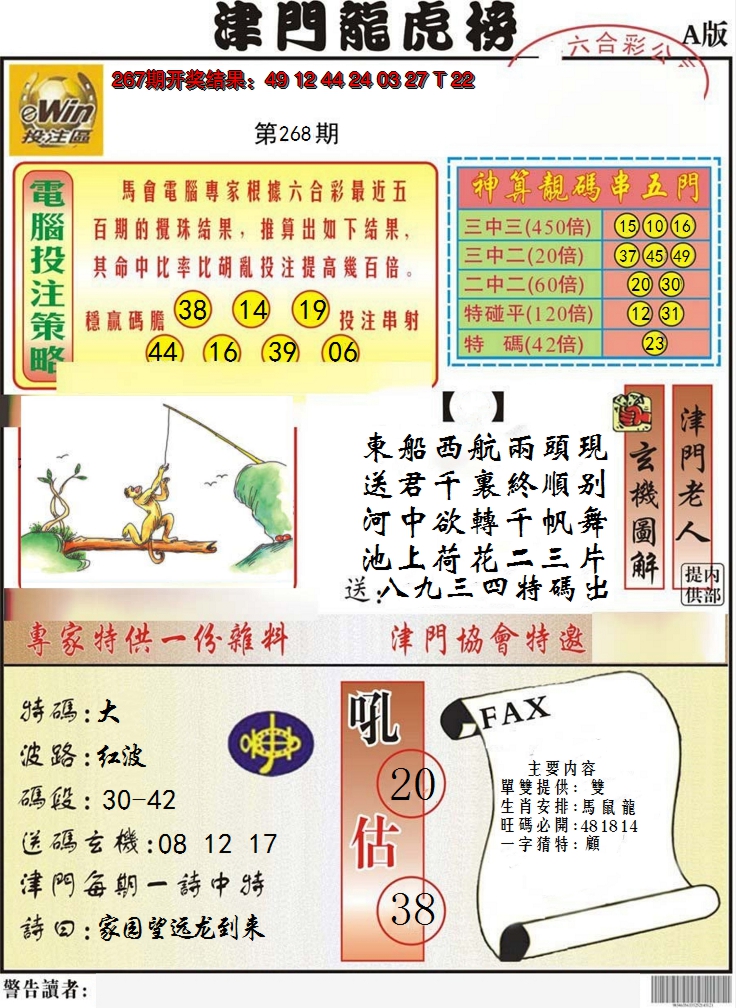 津門龍虎榜
六合彩公
A版
267期开奖结果：49 12 44 24 03 27 T 22
eWin
投注區
第268期
電腦投注策略
馬會電腦專家根據六合彩最近五
百期的攪珠结果，推算出如下结果，
其命中比率比胡亂投注提高幾百倍。
穩贏碼膽 38 14 19 投注串射
44 16 39 06
神算靚碼串五門
三中三(450倍) 15 10 16
三中二(20倍) 37 45 49
二中二(60倍) 20 30
特碰平(120倍) 12 31
特 碼(42倍) 23
【 】
東船西航兩頭現
送君千裏終順别
河中欲轉千帆舞
池上荷花二三片
送:八九三四特碼出
玄機圖解
津門老人
内部提供
專家特供一份雜料
津門協會特邀
特碼:大
波路:红波
碼段:30-42
送碼玄機:08 12 17
津門每期一詩中特
詩曰:家园望远龙到来
吼
20
估
38
FAX
主要内容
單雙提供: 雙
生肖安排:馬鼠龍
旺碼必開:481814
一字猜特:顧
警告讀者: